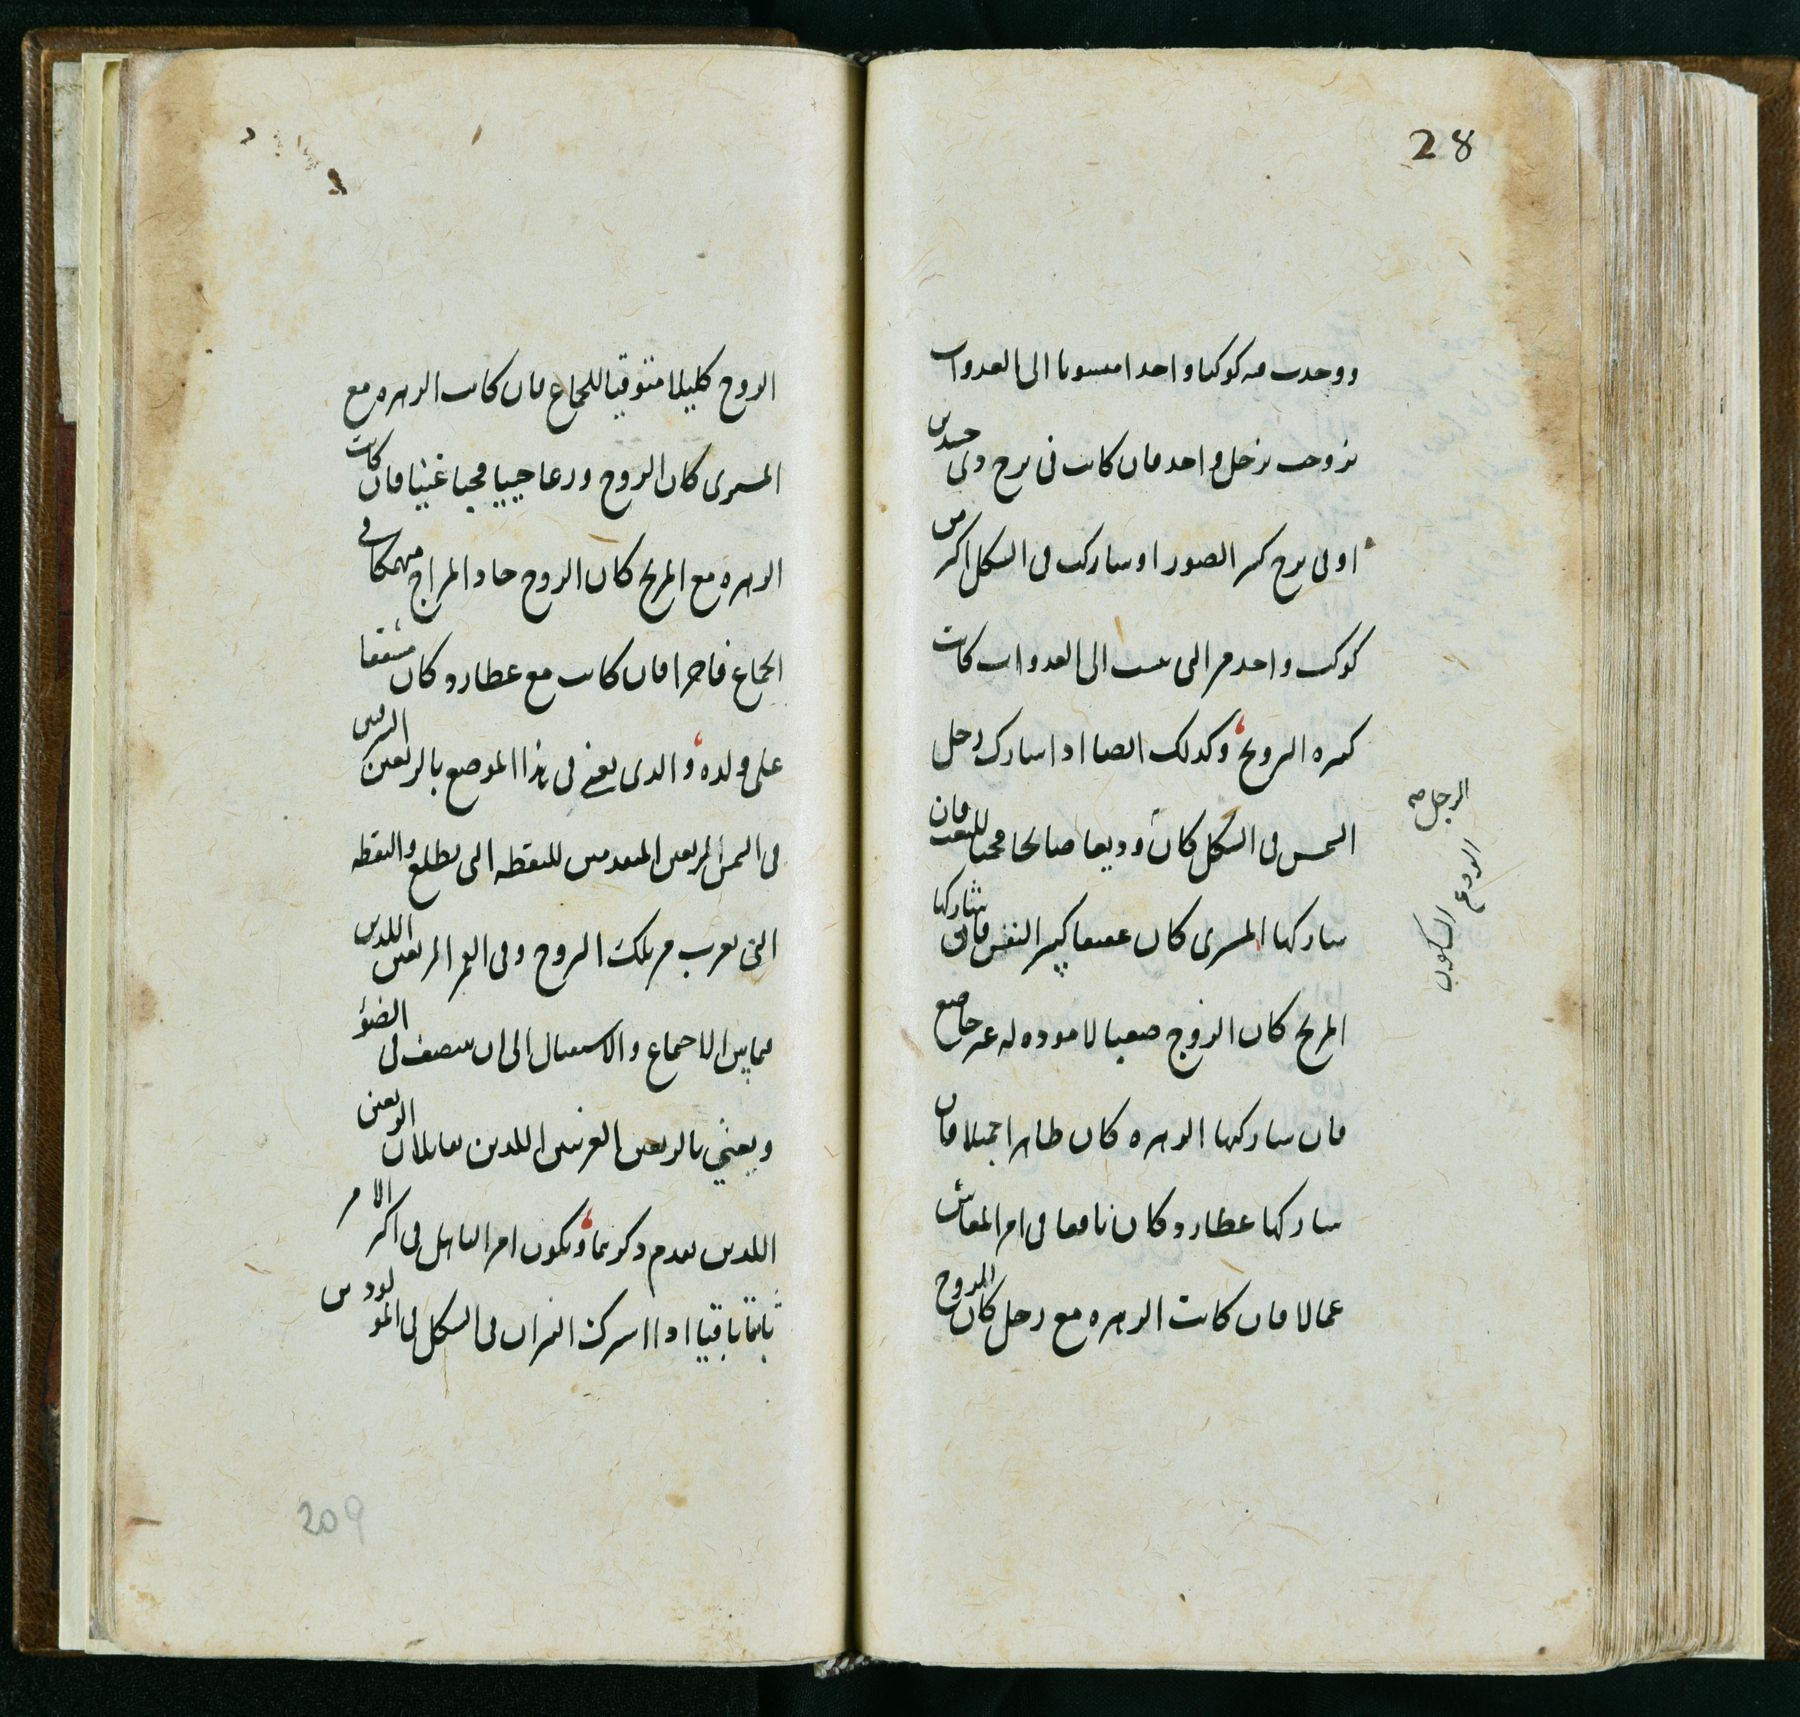 28
ووجدت فيه كوكبا واحدا منسوبا الى الغدوات
تزوجت برجل واحد فان كانت فى برج ذى جسدين
او فى برج كثير الصور او شاركت فى الشكل اكثر من
كوكب واحد من التى تنسب الى الغدوات كانت
كثيرة التزويج وكذلك ايضا اذا شارك زحل
الشمس فى الشكل كان وديعا صالحا محبا للتعب فان
شاركها المشترى كان عفيفا كبير النفس فان شاركها
المريخ كان الزوج صعبا لا مودة له غير خاضع
فان شاركها الزهره كان طاهرا جميلا فان
شاركها عطارد كان نافعا فى امر المعاش
عمالا فان كانت الزهره مع زحل كان الزوج
الرجل صه
الودع
السكون
الزوج كليلا متوقيا للجماع فان كانت الزهره مع
المشترى كان الزوج ورعا حييا محبا غنيا فان كانت
الزهره مع المريخ كان الزوج حاد المزاج منهمكا فى
الجماع فاجرا فان كانت مع عطارد كان مشفقا
على ولده والذى يعنى فى هذا الموضع بالربعين الشرقيين
فى الشمس الربعين المتقدمين للنقطه التى تطلع والنقطه
التى تغرب من فلك البروج وفى القمر الربعين اللذين
فيما بين الاجتماع والاستقبال الى ان ينتصف فى الضوء
ويعنى بالربعين الغربيين اللذين يقابلان الربعين
اللذين تقدم ذكرهما ويكون امر التاهل فى اكثر الامر
ثابتا باقيا اذا اشترك القمران فى الشكل فى المولودين
209